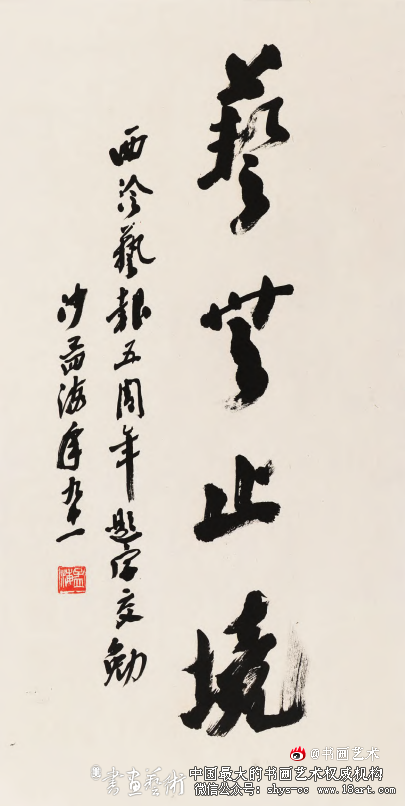 藝無止境
西泠藝報五周年題字交勉
沙孟海年九十一
孟海
@书画艺术
書画藝術
中国最大的书画艺术权威机构
微信公众号：shys-cc www.18art.com